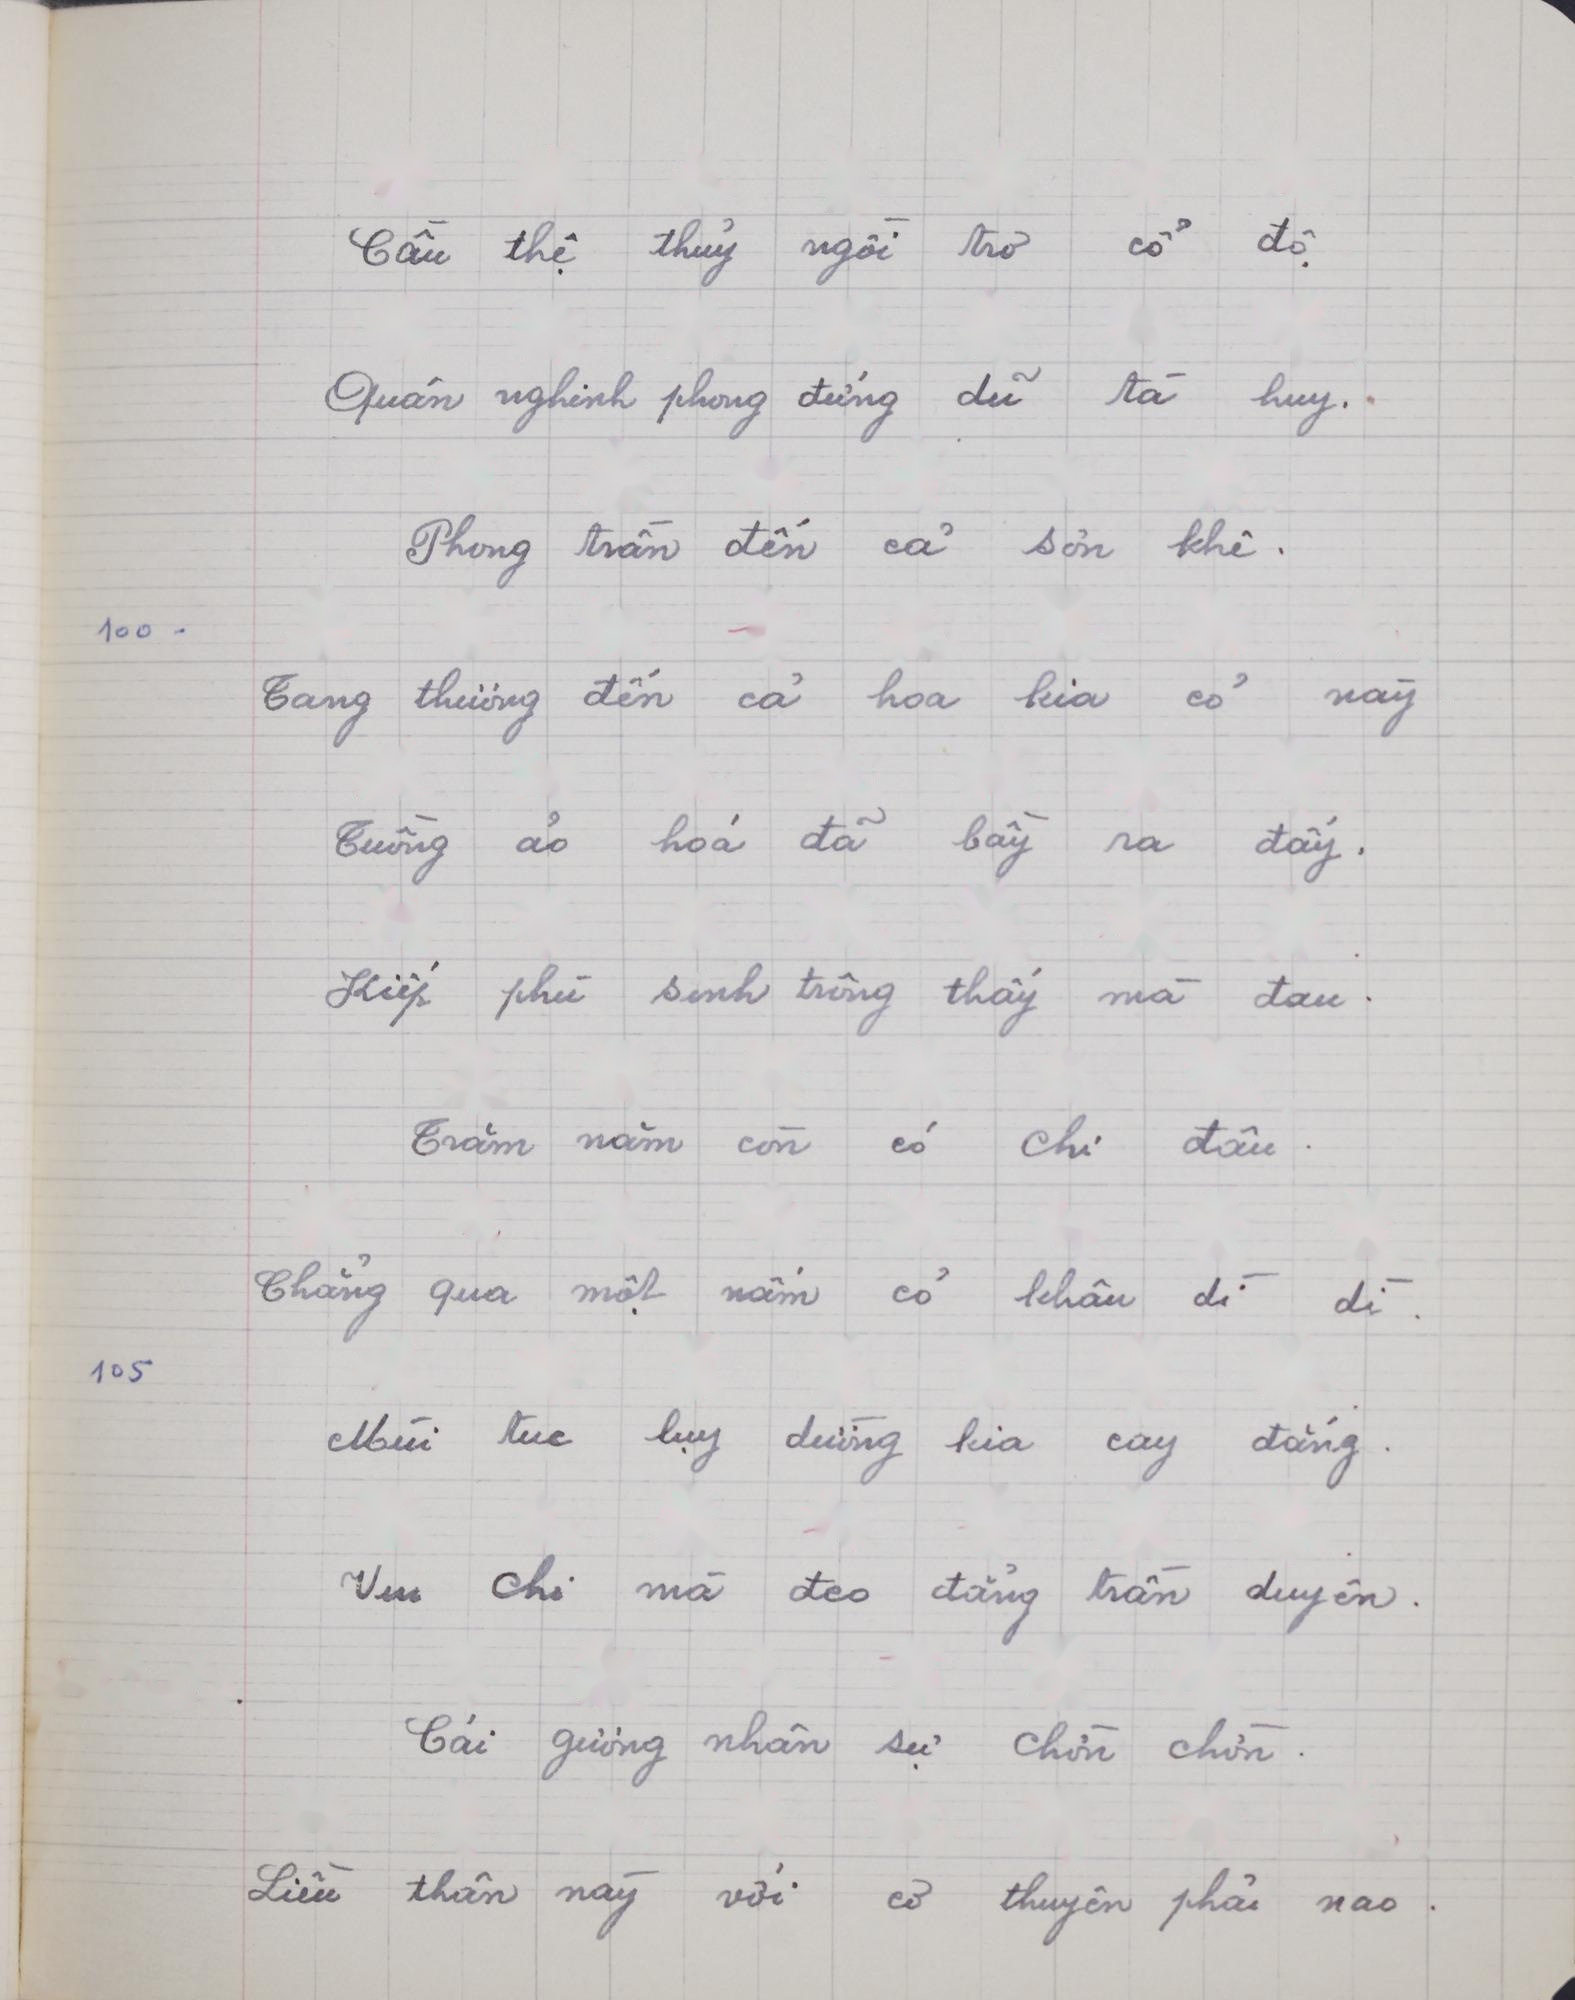 Cầu thệ thủy ngồi trơ cổ độ
Quán nghinh phong đứng dũ tà huy.
Phong trần đến cả sơn khê.
100 -
Tang thương đến cả hoa kia cỏ này
Tuồng ảo hoá đã bầy ra đấy.
Kiếp phù sinh trông thấy mà đau.
Trăm năm còn có chi đâu.
Chẳng qua một nấm cỏ khâu dì dì.
105
Mùi tục lụy dường kia cay đắng.
Vui chi mà đeo đẳng trần duyên.
Cái gương nhân sự chờn chờn.
Liều thân này với cơ thuyền phải nao.